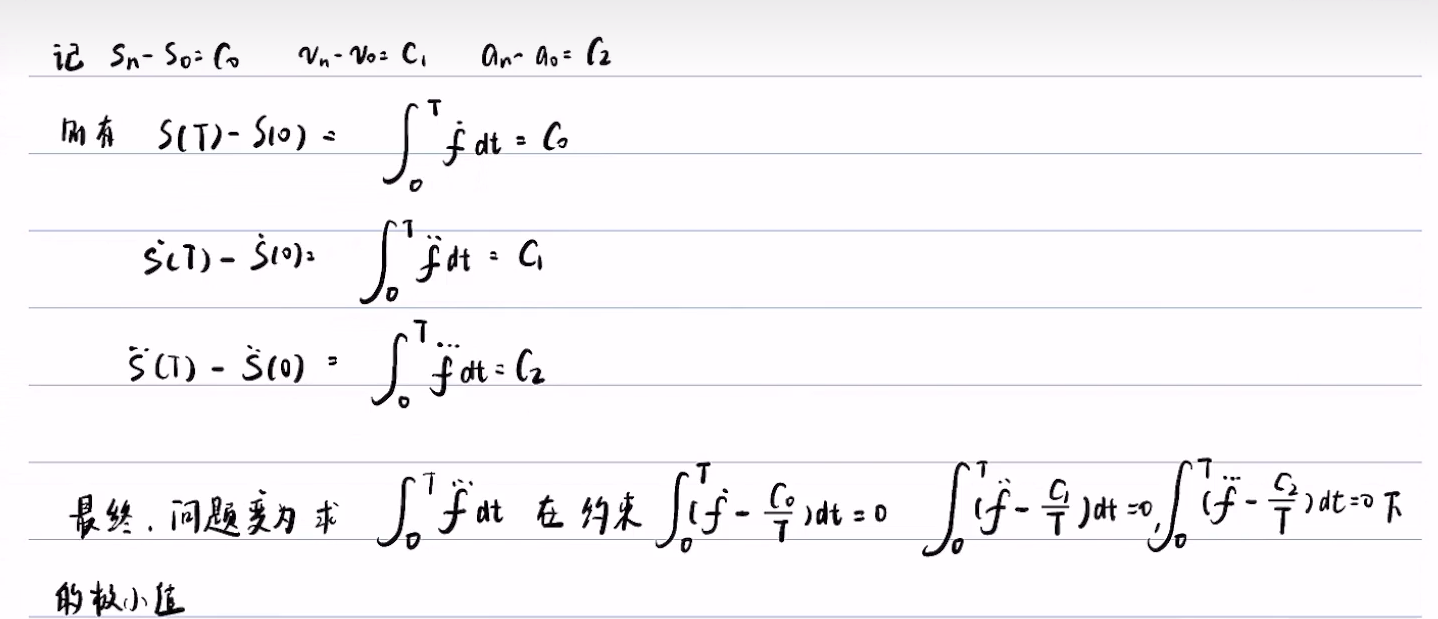 记 Sn - S0 = C0 Vn - V0 = C1 an - a0 = C2
则有 S(T) - S(0) = ∫₀ᵀ ḟ dt = C0
Ṡ(T) - Ṡ(0) = ∫₀ᵀ f̈ dt = C1
S̈(T) - S̈(0) = ∫₀ᵀ f⃛ dt = C2
最终，问题变为求 ∫₀ᵀ f⃛ dt 在约束 ∫₀ᵀ (ḟ - C0/T) dt = 0 ∫₀ᵀ (f̈ - C1/T) dt = 0, ∫₀ᵀ (f⃛ - C2/T) dt = 0 下
的极小值